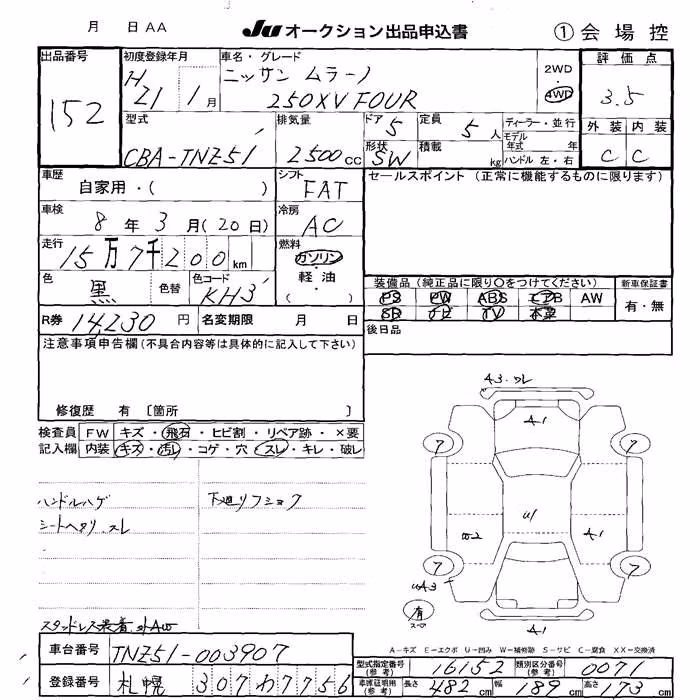 月 日 AA JU オークション出品申込書 ① 会場控
出品番号 152
初度登録年月 H21 1月
車名・グレード ニッサン ムラーノ
250XV FOUR
2WD 4WD
評価点 3.5
型式 CBA-TNZ51
排気量 2500cc
ドア 5 定員 5人
形状 SW 積載 kg
ディーラー・並行
モデル年式 年
ハンドル 左・右
外装 内装
C C
車歴 自家用・( )
シフト FAT
セールスポイント (正常に機能するものに限ります)
車検 8年3月(20日)
冷房 AC
走行 15万7千200km
燃料 ガソリン・軽油・( )
色 黒 色替 色コード KH3
装備品 (純正品に限り〇をつけてください) 新車保証書
PS PW ABS エアB AW 有・無
SR ナビ TV 本革
R券 14,230円 名変期限 月 日
後日品
注意事項申告欄(不具合内容等は具体的に記入して下さい)
修復歴 有 〔箇所 〕
検査員 FW キズ・飛石・ヒビ割・リペア跡・×要
記入欄 内装 キズ・汚レ・コゲ・穴・スレ・キレ・破レ
ハンドルハゲ 下廻りフショク
シートヘタリ、スレ
スタッドレス装着、外AW
A3.ワレ
A-1
7 7
U1 A-1
7 7
UA3
有
A-1
A-キズ E-エクボ U-凹み W-補修跡 S-サビ C-腐食 XX-交換済
車台番号 TNZ51-003907
登録番号 札幌 307 わ 7756
型式指定番号(参考) 16152 類別区分番号(参考) 0071
車庫証明用(参考) 長さ 482cm 幅 189cm 高さ 173cm